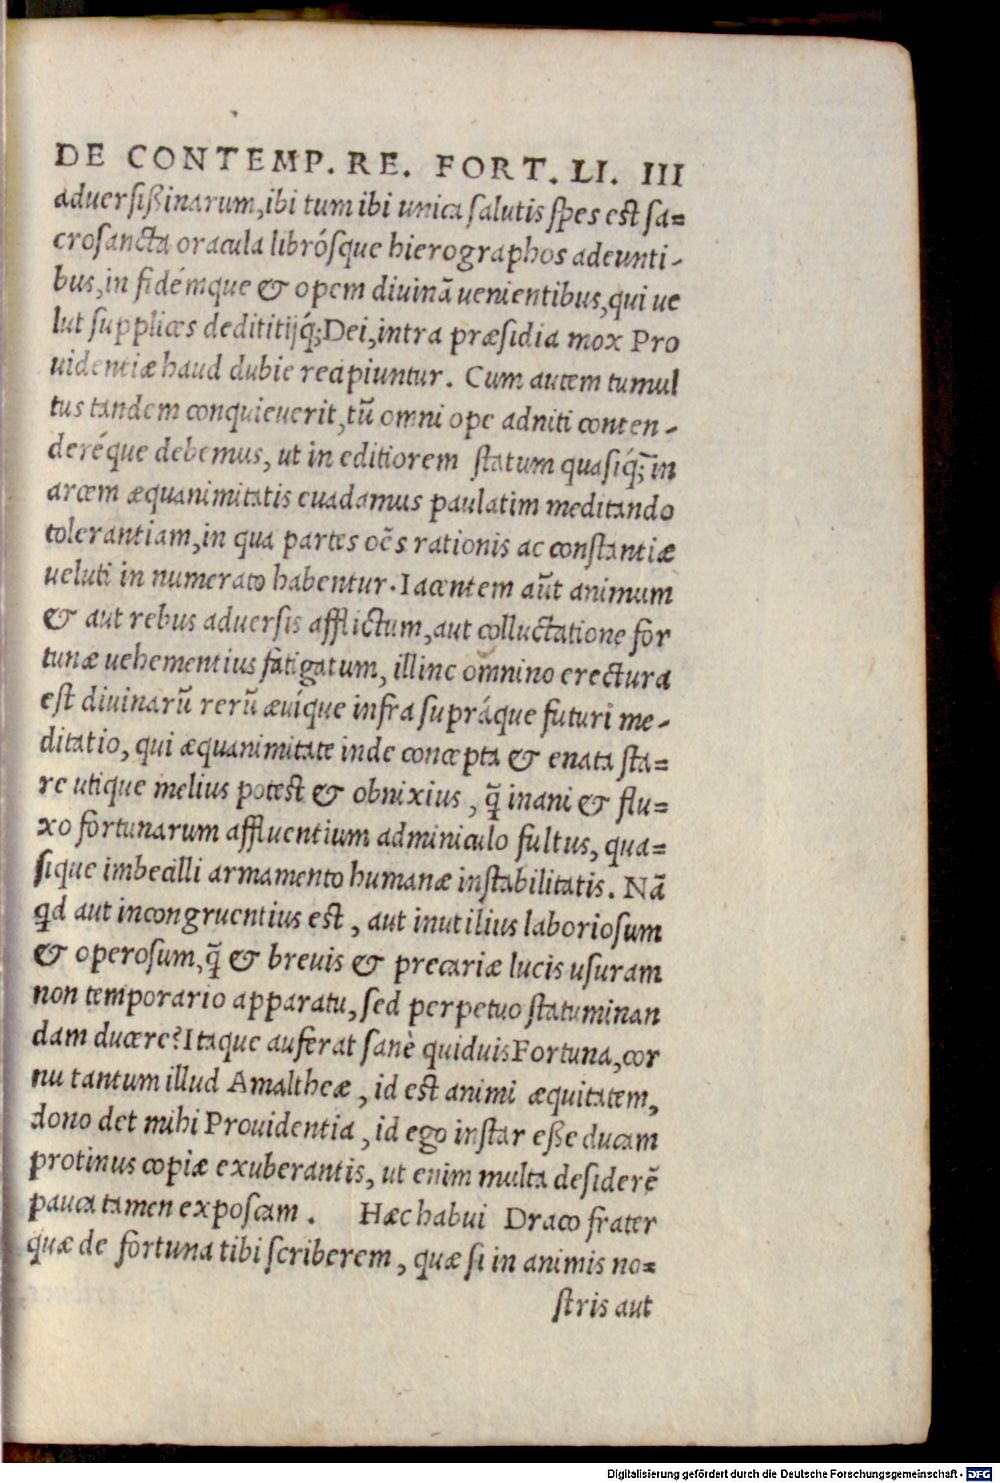 DE CONTEMP. RE. FORT. LI. III
aduersißinarum, ibi tum ibi unica salutis spes est sa=
crosancta oracula librósque hierographos adeunti-
bus, in fidémque & opem diuinā uenientibus, qui ue
lut supplices dedititijq́; Dei, intra præsidia mox Pro
uidentiæ haud dubie recipiuntur. Cum autem tumul
tus tandem conquieuerit, tū omni ope adniti conten-
deréque debemus, ut in editiorem statum quasiq́; in
arcem æquanimitatis euadamus paulatim meditando
tolerantiam, in qua partes oēs rationis ac constantiæ
ueluti in numerato habentur. Iacentem aūt animum
& aut rebus aduersis afflictum, aut colluctatione for
tunæ uehementius fatigatum, illinc omnino erectura
est diuinarū rerū æuíque infra supráque futuri me-
ditatio, qui æquanimitate inde concepta & enata sta=
re utique melius potest & obnixius, q̄ inani & flu=
xo fortunarum affluentium adminiculo fultus, qua=
sique imbecilli armamento humanæ instabilitatis. Nā
qd aut incongruentius est, aut inutilius laboriosum
& operosum, q̄ & breuis & precariæ lucis usuram
non temporario apparatu, sed perpetuo statuminan
dam ducere? Itaque auferat sanè quiduis Fortuna, cor
nu tantum illud Amaltheæ, id est animi æquitatem,
dono det mihi Prouidentia, id ego instar eße ducam
protinus copiæ exuberantis, ut enim multa desiderē
pauca tamen exposcam. Hæc habui Draco frater
quæ de fortuna tibi scriberem, quæ si in animis no=
stris aut
Digitalisierung gefördert durch die Deutsche Forschungsgemeinschaft - DFG